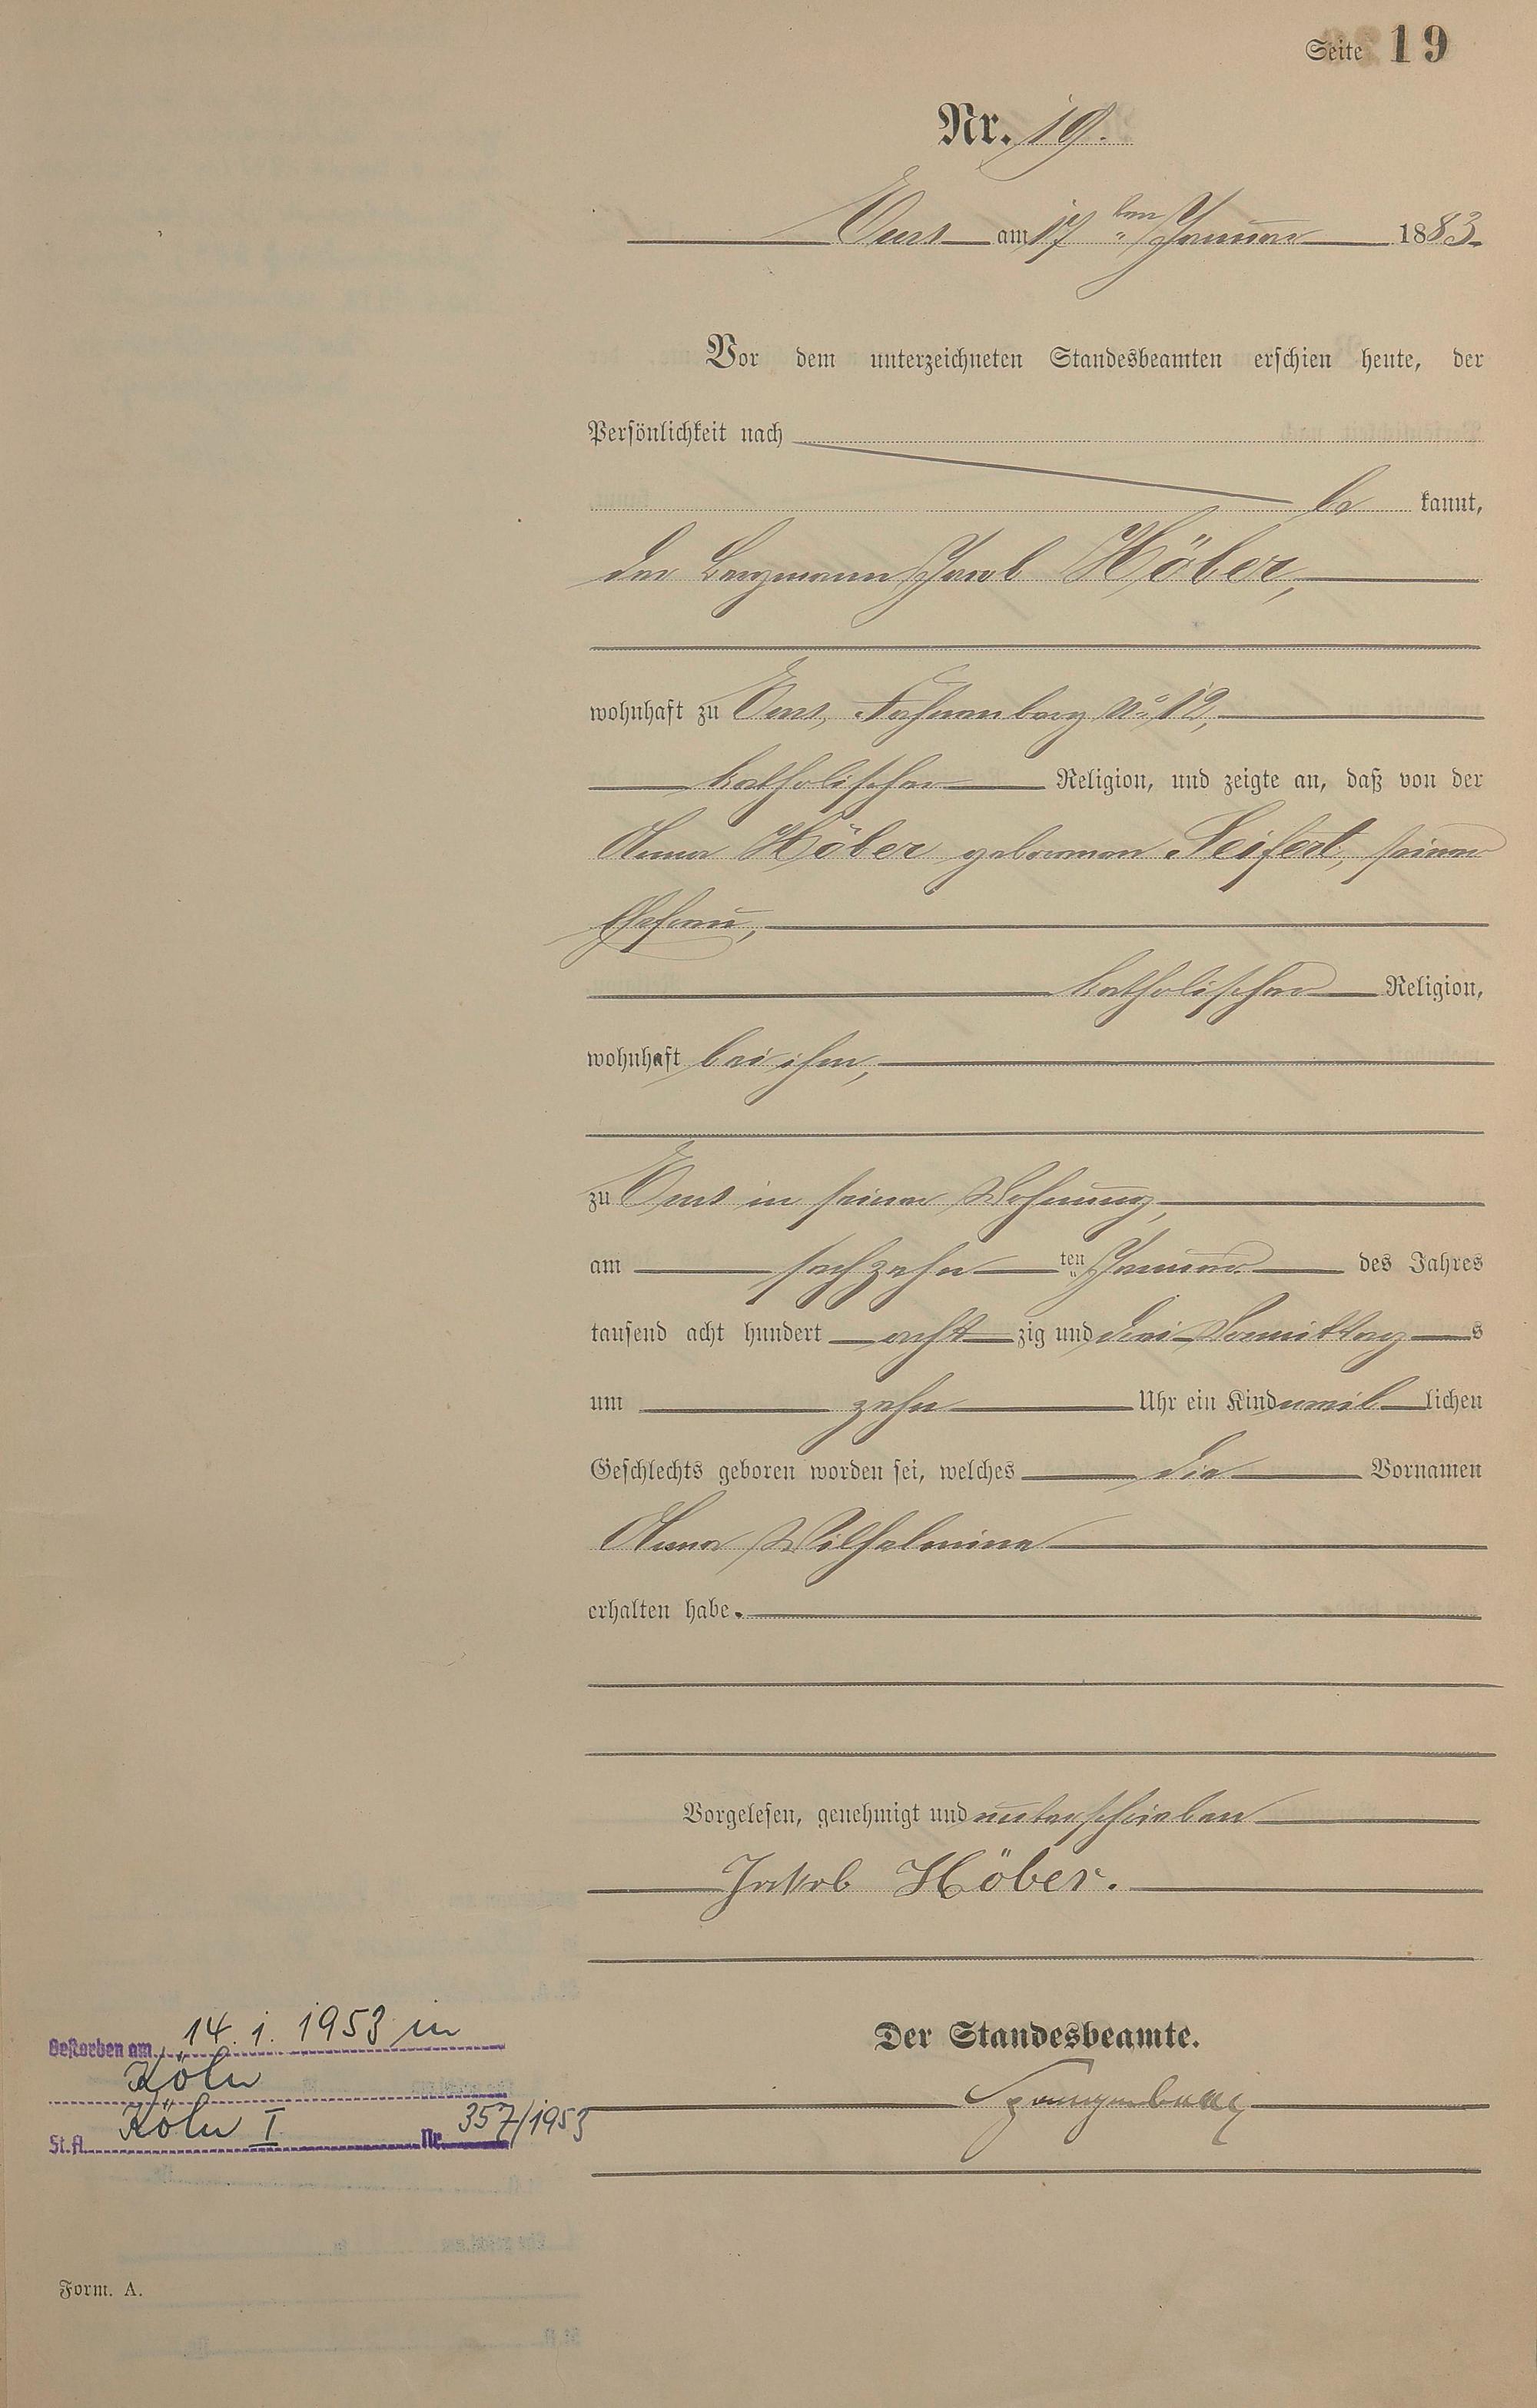 Seite 19
Nr. 19.
Ems am 17ten Januar 1883.
Vor dem unterzeichneten Standesbeamten erschien heute, der
Persönlichkeit nach
be kannt,
der Bergmann Jacob Höber,
wohnhaft zu Ems, No 12,
katholischer Religion, und zeigte an, daß von der
Anna Höber geborenen Seifert, seiner
Ehefrau,
katholischer Religion,
wohnhaft bei ihm,
zu Ems in seiner Wohnung,
am sechzehn ten Januar des Jahres
tausend acht hundert acht zig und drei Vormittag s
um zehn Uhr ein Kind weib lichen
Geschlechts geboren worden sei, welches die Vornamen
Anna Wilhelmina
erhalten habe.
Vorgelesen, genehmigt und unterschrieben
Jakob Höber.
Der Standesbeamte.
Gestorben am 14. 1. 1953 in
Köln
St. A. Köln I Nr. 357/1953
Form. A.